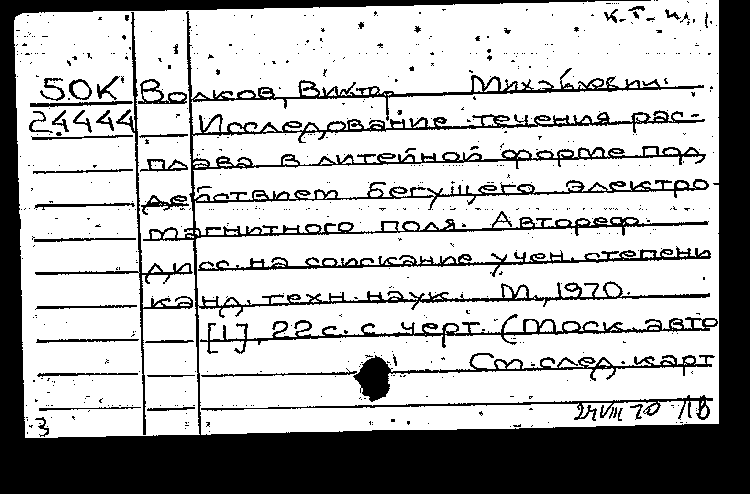 К-Т-
50К Волков, Виктор Михайлович.
24444 Исследование течения рас-
плава в литейной форме под
действием бегущего электро-
магнитного поля. Автореф.
дисс. на соискание учен. степени
канд. техн. наук. М., 1970.
[1], 22 с. с черт. (Моск. авто
См. след. карт
24 VIII 70
3